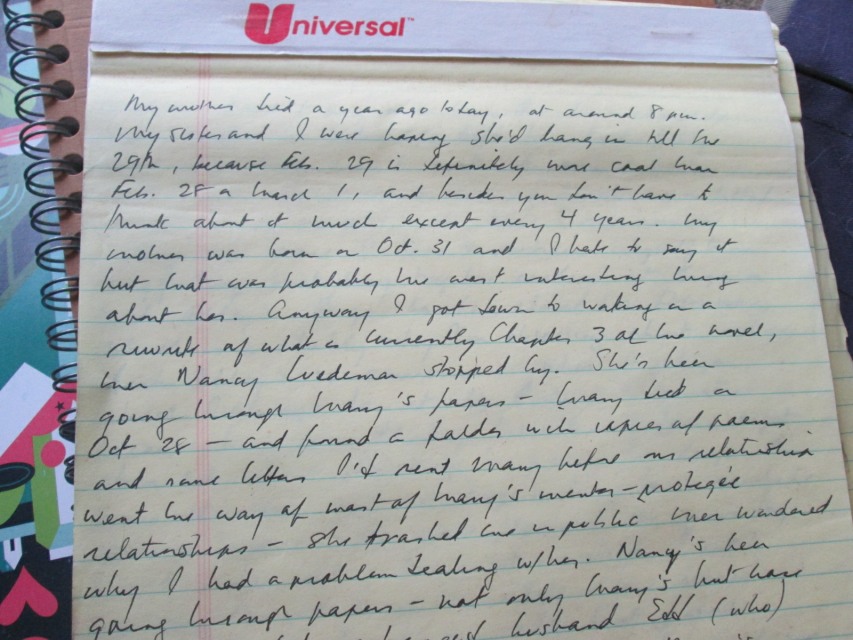 Universal
My mother died a year ago today, at around 8 p.m.
My sister and I were hoping she'd hang in till the
29th, because Feb. 29 is definitely more cool than
Feb. 28 or March 1, and besides you don't have to
think about it much except every 4 years. My
mother was born on Oct. 31 and I hate to say it
but that was probably the most interesting thing
about her. Anyway I got down to working on a
rewrite of what is currently Chapter 3 of the novel,
then Nancy stopped by. She's been
going through Mary's papers – Mary died on
Oct 28 – and found a folder with copies of poems
and some letters I'd sent Mary before our relationship
went the way of most of Mary's mentor-protegée
relationships – she trashed me in public then wondered
why I had a problem dealing w/her. Nancy's been
going through papers – not only Mary's but those
husband Edd (who)